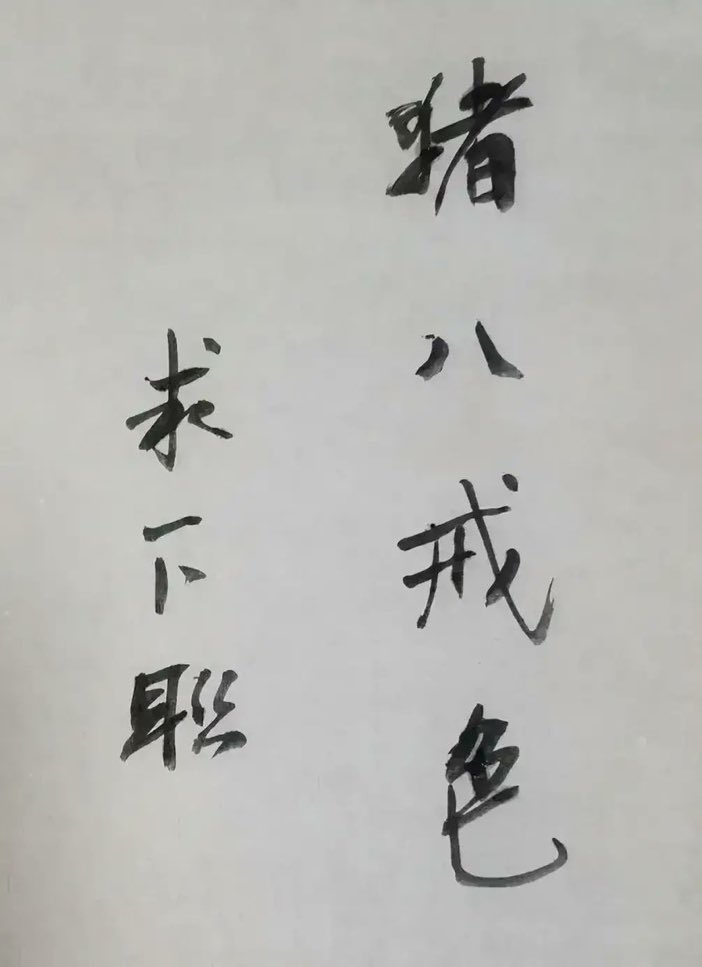 猪八戒色
求下联